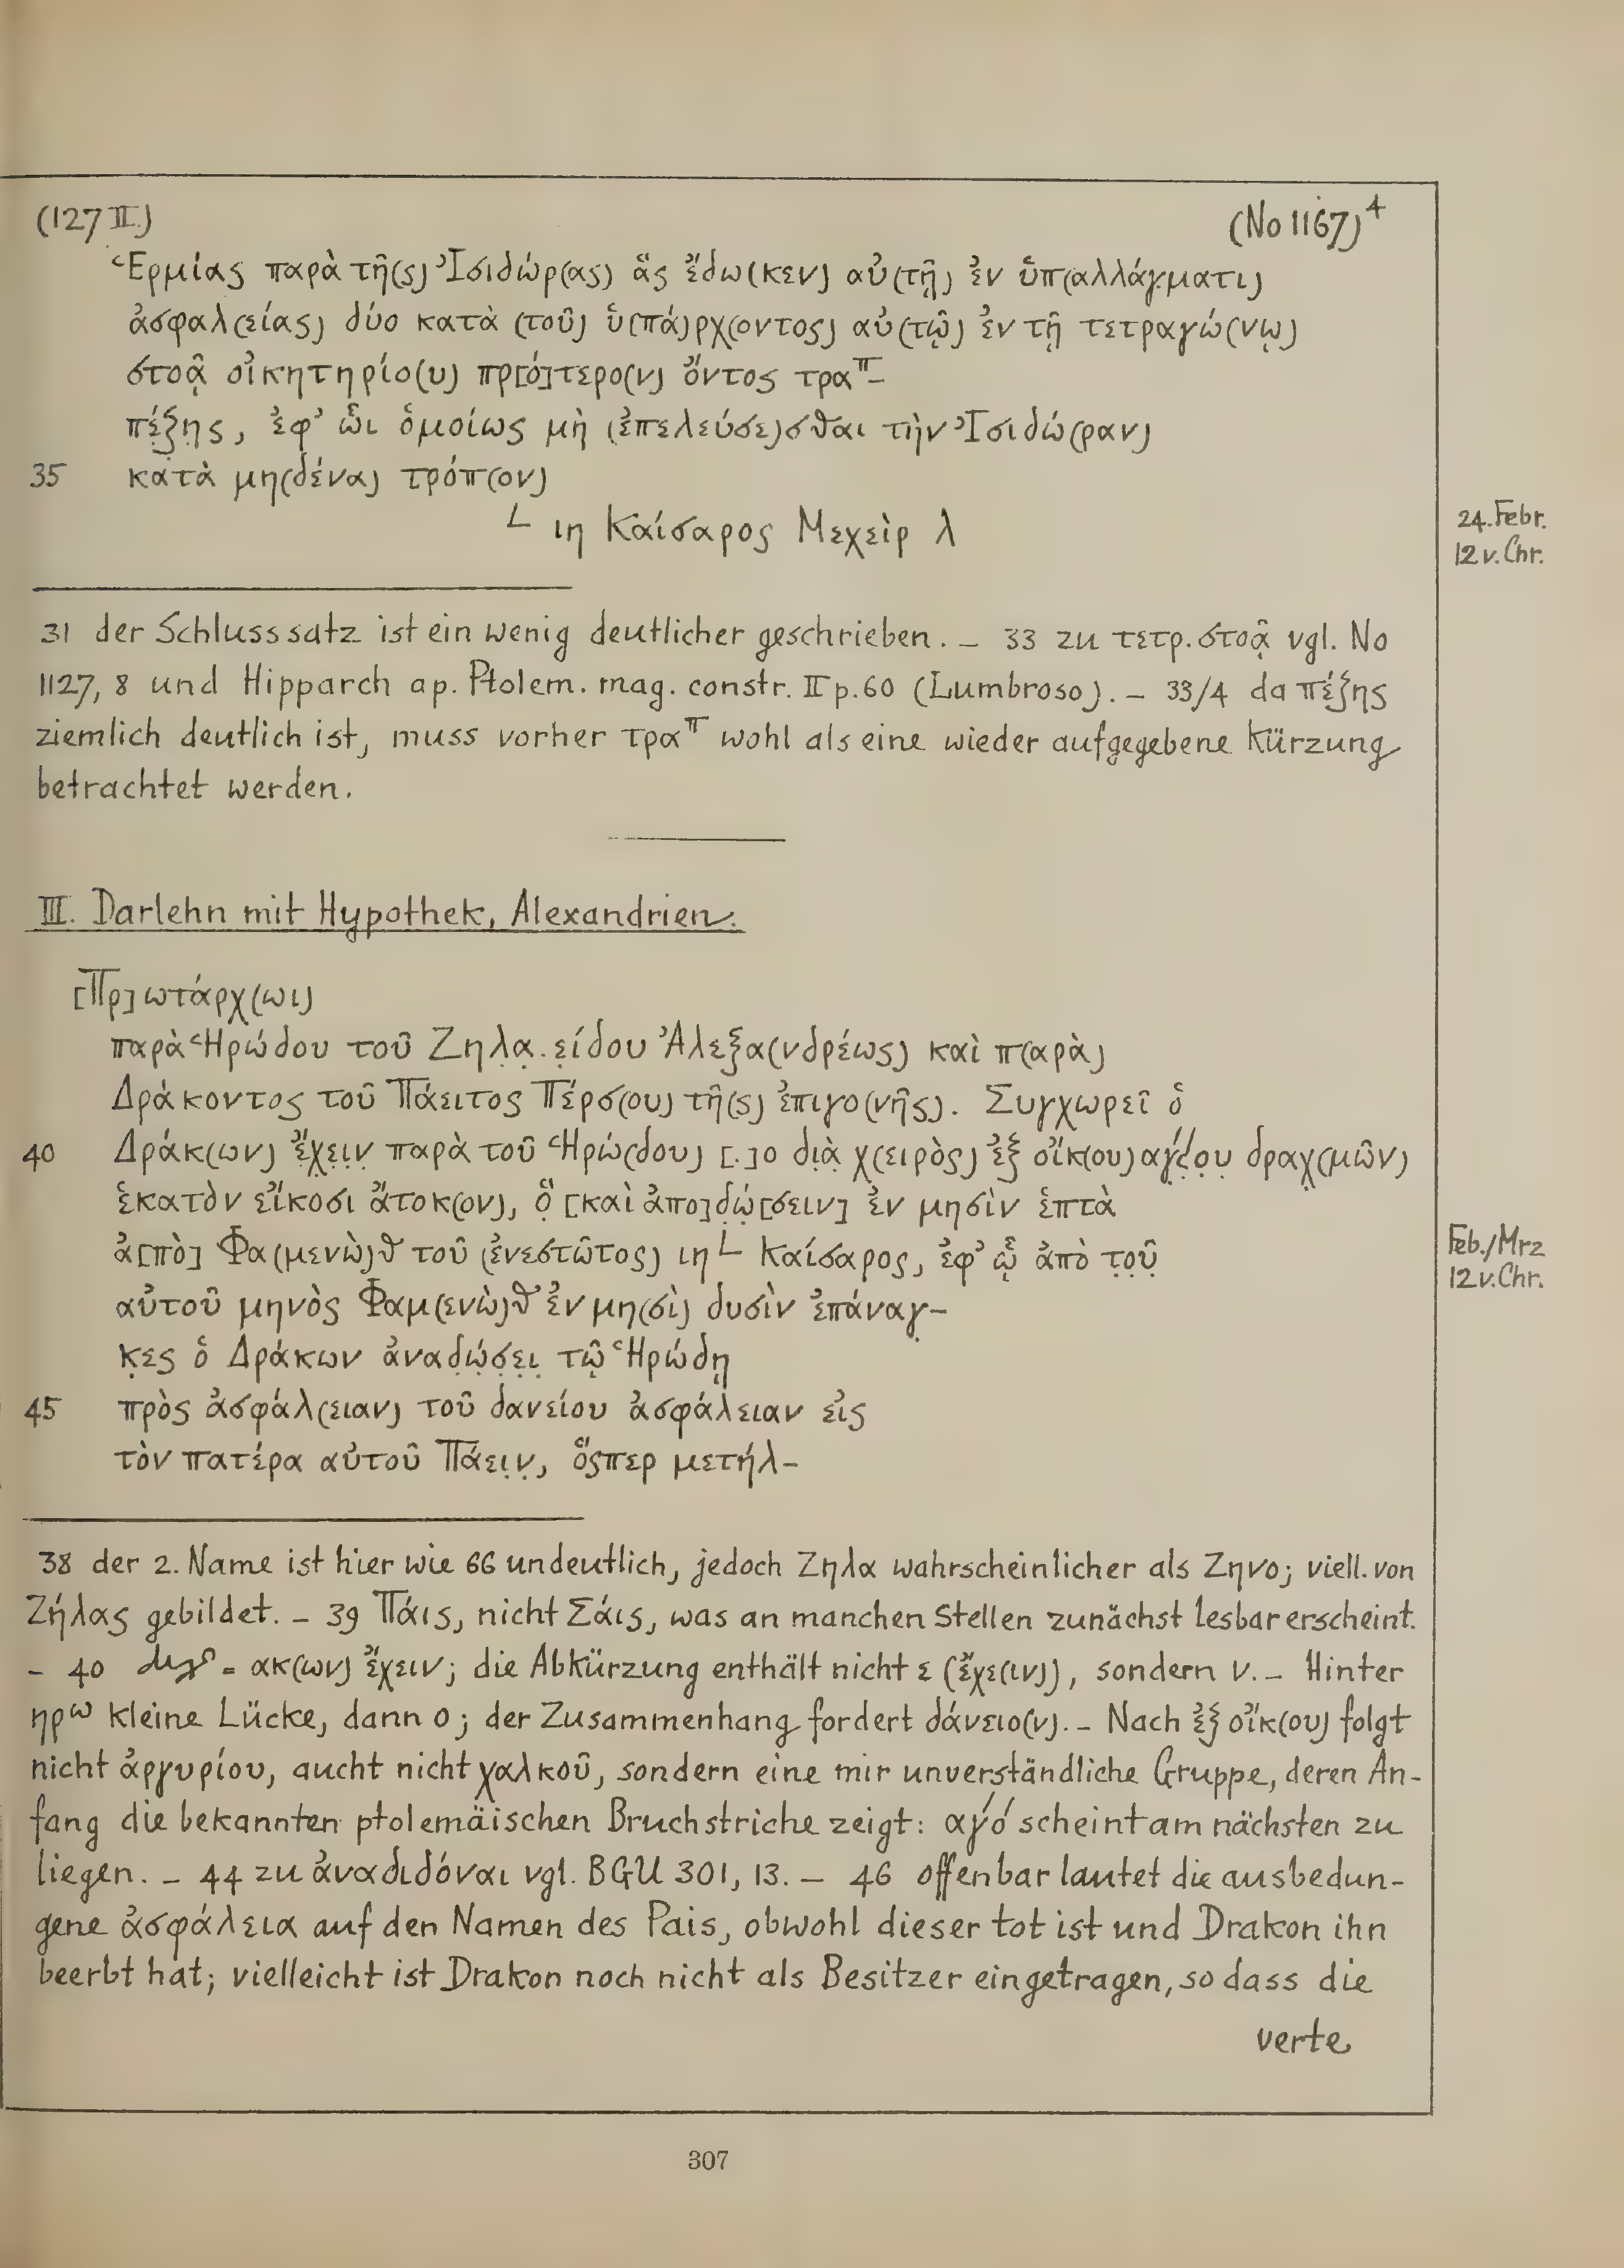 (127 II.) (No 1167)⁴
Ἑρμίας παρὰ τῆ(ς) Ἰσιδώρ(ας) ἃς ἔδω(κεν) αὐ(τῇ) ἐν ὑπ(αλλάγματι)
ἀσφαλ(είας) δύο κατὰ (τοῦ) ὑ(πά)ρχ(οντος) αὐ(τῷ) ἐν τῇ τετραγώ(νῳ)
στοᾷ οἰκητηρίο(υ) πρ[ό]τερο(ν) ὄντος τραᵖ-
πέζης, ἐφ’ ὧι ὁμοίως μὴ (ἐπελεύσε)σθαι τὴν Ἰσιδώ(ραν)
35 κατὰ μη(δένα) τρόπ(ον)
∟ ιη Καίσαρος Μεχεὶρ λ
24. Febr.
12 v. Chr.
31 der Schlusssatz ist ein wenig deutlicher geschrieben. – 33 zu τετρ. στοᾷ vgl. No
1127, 8 und Hipparch ap. Ptolem. mag. constr. II p. 60 (Lumbroso). – 33/4 da πέζης
ziemlich deutlich ist, muss vorher τραᵖ wohl als eine wieder aufgegebene Kürzung
betrachtet werden.
III. Darlehn mit Hypothek, Alexandrien.
[Πρ]ωτάρχ(ωι)
παρὰ Ἡρώδου τοῦ Ζηλ̣α̣.ε̣ίδου Ἀλεξα(νδρέως) καὶ π(αρὰ)
Δράκοντος τοῦ Πάειτος Πέρσ(ου) τῆ(ς) ἐπιγο(νῆς). Συγχωρεῖ ὁ
40 Δράκ(ων) ἔ̣χ̣ε̣ι̣ν̣ παρὰ τοῦ Ἡρώ(δου) [.]ο δι̣ὰ̣ χ(ειρὸς) ἐξ οἴκ(ου) δραχ̣(μῶν)
ἑκατὸν εἴκοσι ἄτοκ(ον), ὃ̣ [καὶ ἀπο]δ̣ώ̣[σειν] ἐν μησὶν ἑπτὰ
ἀ[πὸ] Φα(μενὼ)θ τοῦ (ἐνεστῶτος) ιη ∟ Καίσαρος, ἐφ’ ᾧ ἀπὸ τ̣ο̣ῦ̣
Feb./Mrz
12 v. Chr.
αὐτοῦ μηνὸς Φαμ(ενὼ)θ ἐν μη(σὶ) δυσὶν ἐπάναγ̣-
κ̣ες ὁ Δράκων ἀναδ̣ώ̣σ̣ε̣ι̣ τῷ Ἡρώδῃ
45 πρὸς ἀσφάλ(ειαν) τοῦ δανείου ἀσφάλειαν εἰς
τὸν πατέρα αὐτοῦ Πάει̣ν̣, ὅςπερ μετήλ-
38 der 2. Name ist hier wie 66 undeutlich, jedoch Ζηλα wahrscheinlicher als Ζηνο; viell. von
Ζήλας gebildet. – 39 Πάις, nicht Σάις, was an manchen Stellen zunächst lesbar erscheint.
– 40 = ακ(ων) ἔχειν; die Abkürzung enthält nicht ε (ἔχε(ιν)), sondern ν. – Hinter
ηρω kleine Lücke, dann ο; der Zusammenhang fordert δάνειο(ν). – Nach ἐξ οἴκ(ου) folgt
nicht ἀργυρίου, aucht nicht χαλκοῦ, sondern eine mir unverständliche Gruppe, deren An-
fang die bekannten ptolemäischen Bruchstriche zeigt: αγ́ό scheint am nächsten zu
liegen. – 44 zu ἀναδιδόναι vgl. BGU 301, 13. – 46 offenbar lautet die ausbedun-
gene ἀσφάλεια auf den Namen des Pais, obwohl dieser tot ist und Drakon ihn
beerbt hat; vielleicht ist Drakon noch nicht als Besitzer eingetragen, so dass die
verte
307